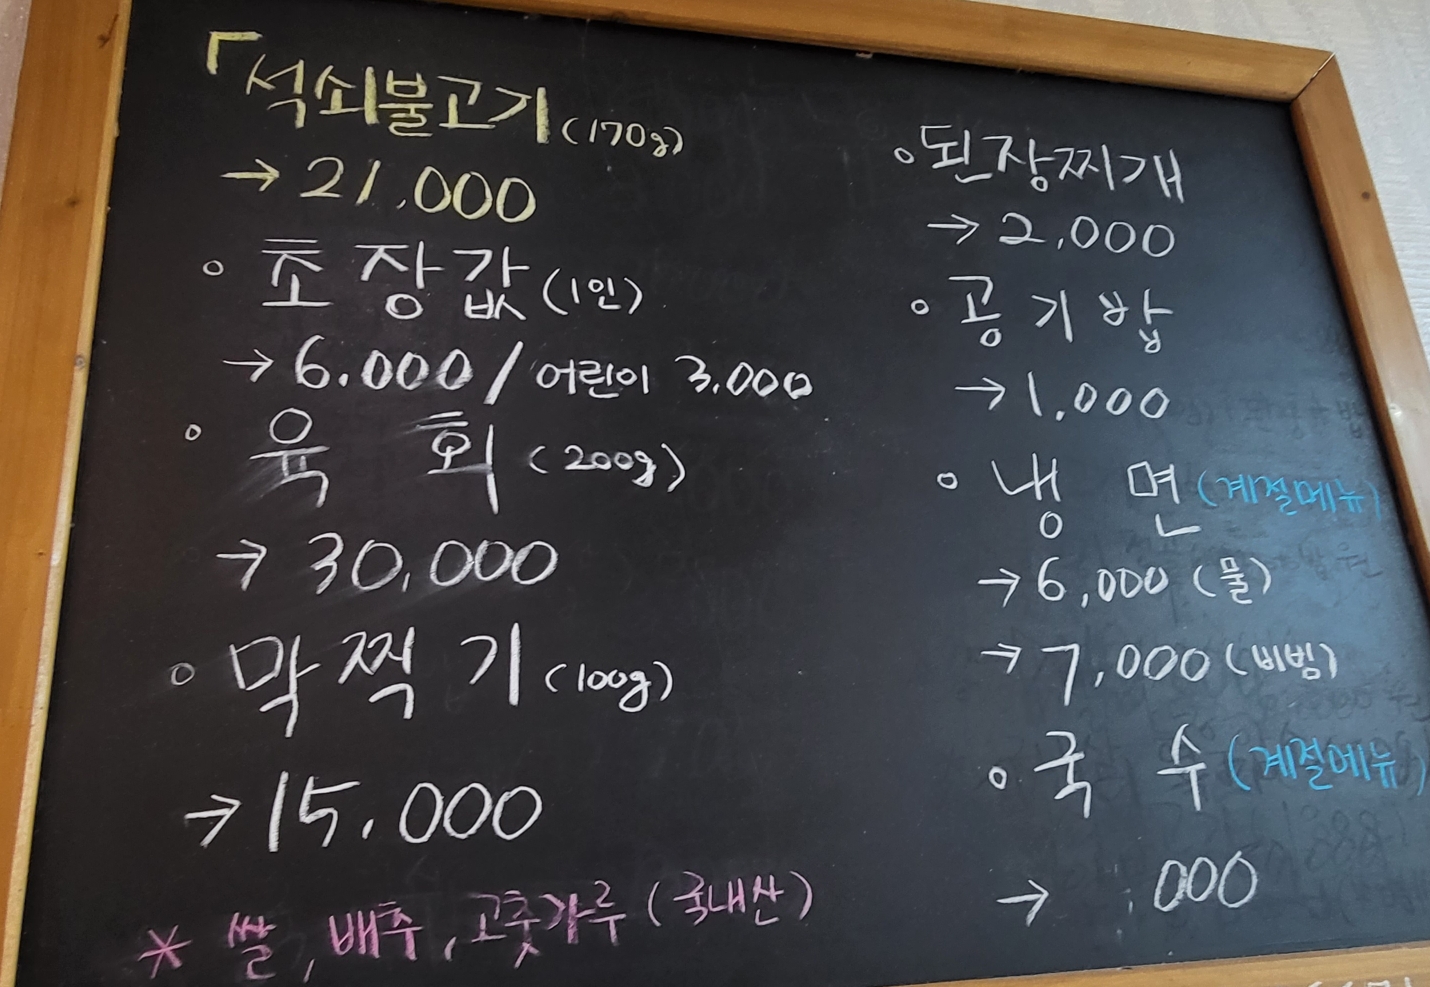 「석쇠불고기(170g)
→ 21.000
◦ 초장값(1인)
→ 6.000 / 어린이 3.000
◦ 육회 (200g)
→ 30,000
◦ 막찍기(100g)
→ 15.000
* 쌀, 배추, 고춧가루 (국내산)
◦ 된장찌개
→ 2,000
◦ 공기밥
→ 1,000
◦ 냉면(계절메뉴)
→ 6,000 (물)
→ 7,000 (비빔)
◦ 국수(계절메뉴)
→ .000